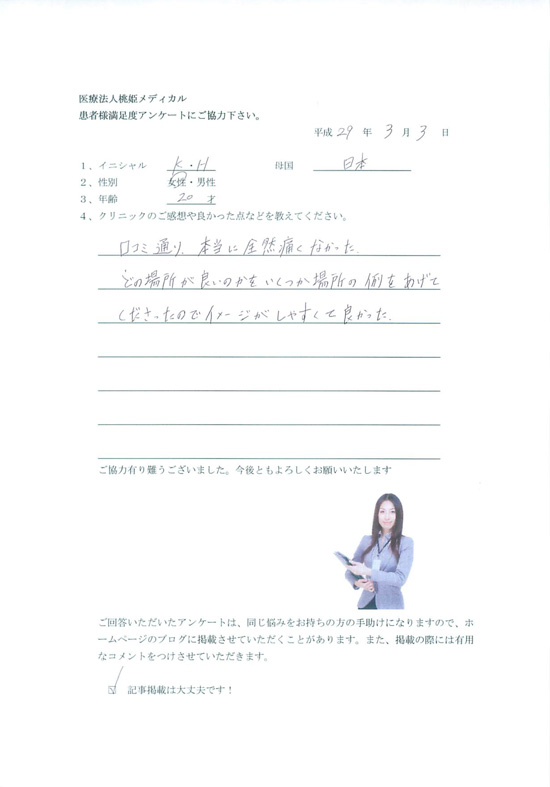 医療法人桃姫メディカル
患者様満足度アンケートにご協力下さい。
平成 29 年 3 月 3 日
1、イニシャル K・H 母国 日本
2、性別 女性・男性
3、年齢 20 才
4、クリニックのご感想や良かった点などを教えてください。
口コミ通り、本当に全然痛くなかった。
どの場所が良いのかをいくつか場所の例をあげて
くださったのでイメージがしやすくて良かった。
ご協力有り難うございました。今後ともよろしくお願いいたします
ご回答いただいたアンケートは、同じ悩みをお持ちの方の手助けになりますので、ホ
ームページのブログに掲載させていただくことがあります。また、掲載の際には有用
なコメントをつけさせていただきます。
☑ 記事掲載は大丈夫です！